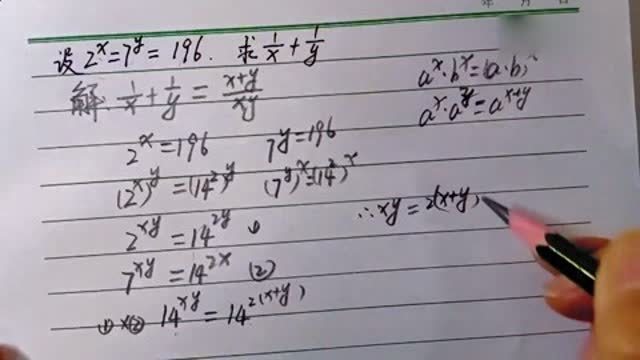 年 月 日
设 2^x=7^y=196. 求 1/x+1/y
解 1/x+1/y=(x+y)/xy
a^x·b^x=(a·b)^x
a^x·a^y=a^(x+y)
2^x=196 7^y=196
(2^x)^y=(14^2)^y (7^y)^x=(14^2)^x
2^(xy)=14^(2y) ①
7^(xy)=14^(2x) (2)
①×② 14^(xy)=14^(2(x+y))
∴xy=2(x+y)